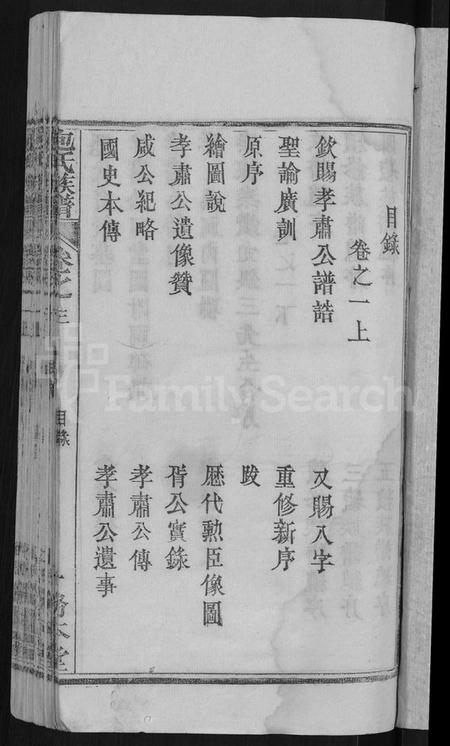 目錄
卷之一上
欽賜孝肅公譜誥 又賜八字
聖諭廣訓 重修新序
原序 跋
繪圖說 歷代勲臣像圖
孝肅公遺像贊 胥公實錄
咸公紀略 孝肅公傳
國史本傳 孝肅公遺事
包氏族譜
目錄
FamilySearch